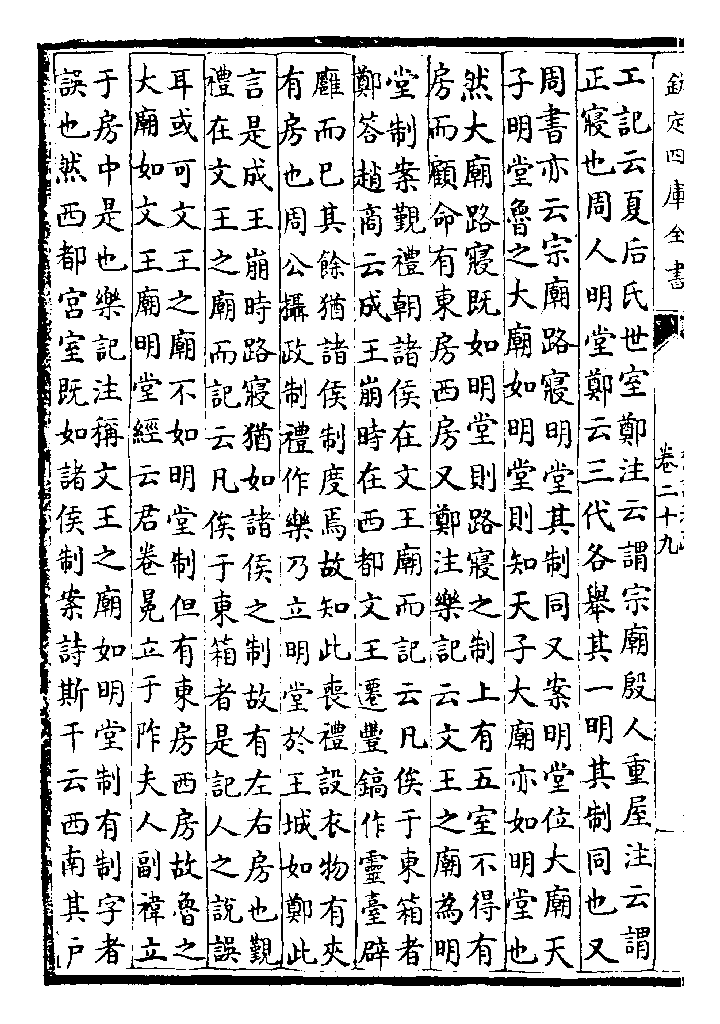 欽定四庫全書
卷二十九
工記云夏后氏世室鄭注云謂宗廟殷人重屋注云謂
正寢也周人明堂鄭云三代各舉其一明其制同也又
周書亦云宗廟路寢明堂其制同又案明堂位大廟天
子明堂魯之大廟如明堂則知天子大廟亦如明堂也
然大廟路寢既如明堂則路寢之制上有五室不得有
房而顧命有東房西房又鄭注樂記云文王之廟為明
堂制案覲禮朝諸侯在文王廟而記云凡俟于東箱者
鄭答趙商云成王崩時在西都文王遷豐鎬作靈臺辟
廱而已其餘猶諸侯制度焉故知此喪禮設衣物有夾
有房也周公攝政制禮作樂乃立明堂於王城如鄭此
言是成王崩時路寢猶如諸侯之制故有左右房也覲
禮在文王之廟而記云凡俟于東箱者是記人之說誤
耳或可文王之廟不如明堂制但有東房西房故魯之
大廟如文王廟明堂經云君卷冕立于阼夫人副褘立
于房中是也樂記注稱文王之廟如明堂制有制字者
誤也然西都宮室既如諸侯制案詩斯干云西南其戶